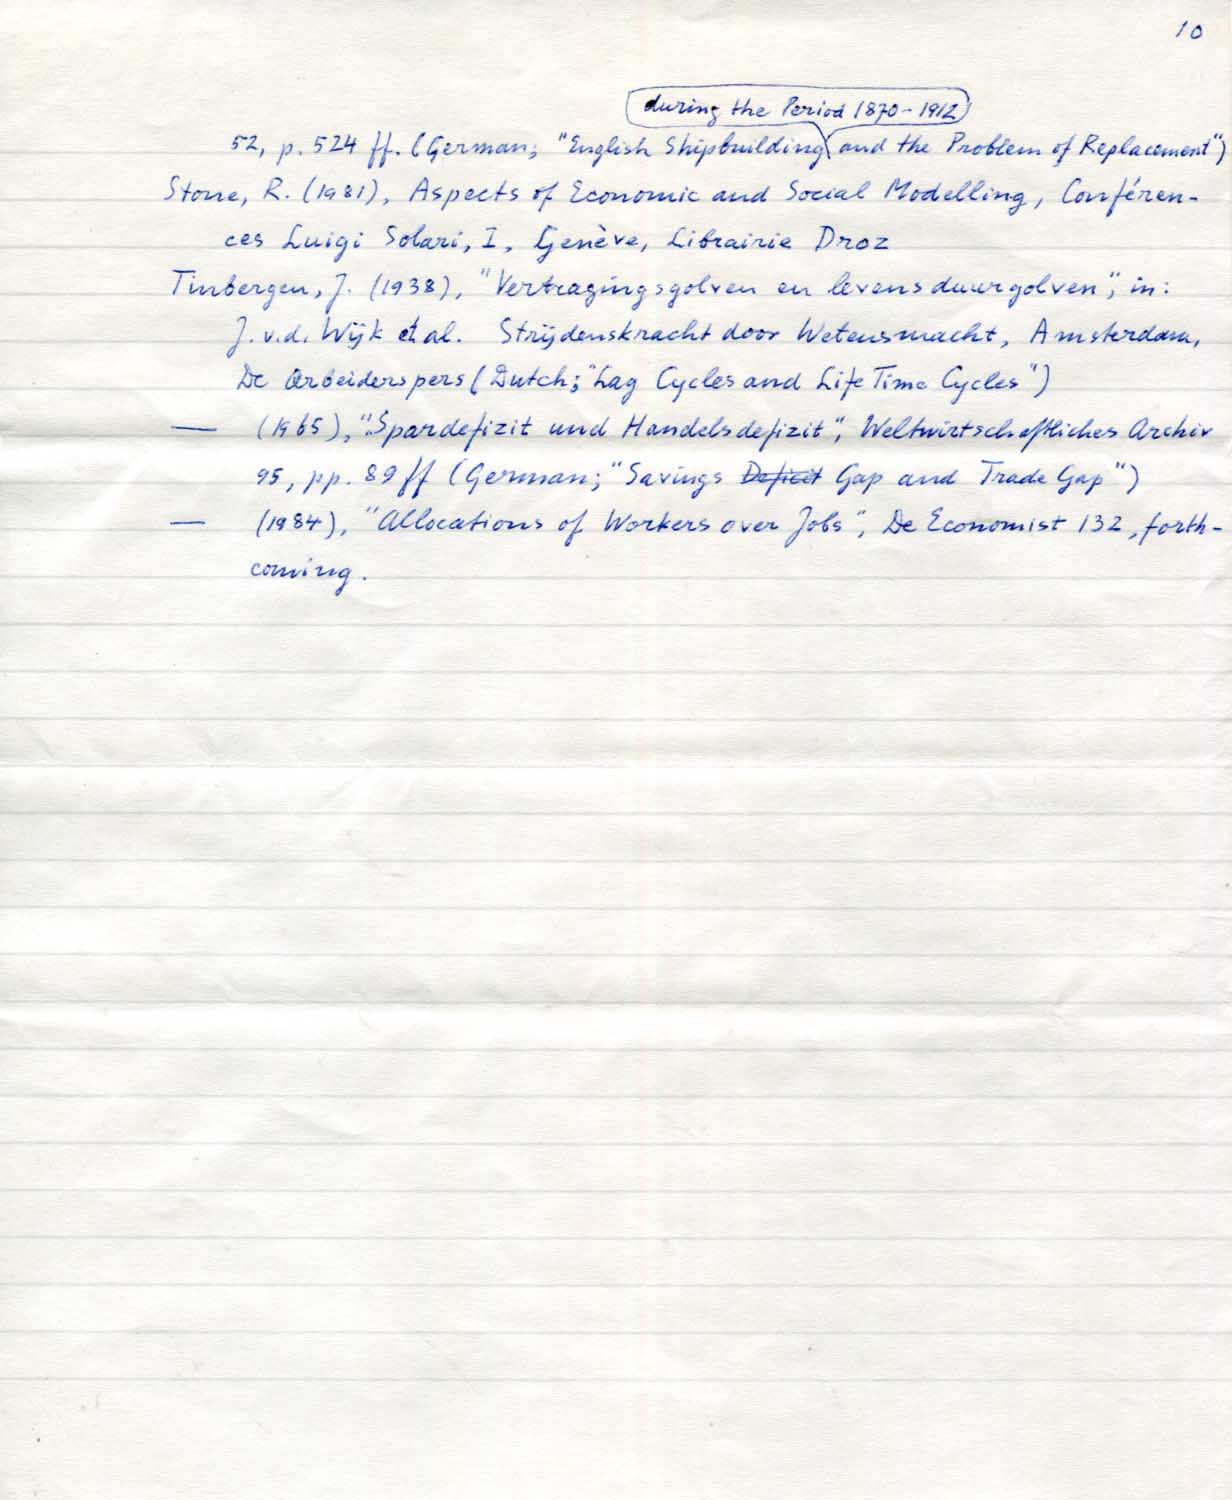 10
during the Period 1870-1912
52, p. 524 ff. (German; "English Shipbuilding and the Problem of Replacement")
Stone, R. (1981), Aspects of Economic and Social Modelling, Conféren-
ces Luigi Solari, I, Genève, Librairie Droz
Tinbergen, J. (1938), "Vertragingsgolven en levensduurgolven", in:
J. v.d. Wijk et al. Strijdenskracht door Wetensmacht, Amsterdam,
De Arbeiderspers (Dutch; "Lag Cycles and Life Time Cycles")
— (1965), "Spardefizit und Handelsdefizit", Weltwirtschaftliches Archiv
95, pp. 89 ff (German; "Savings Deficit Gap and Trade Gap")
— (1984), "Allocations of Workers over Jobs", De Economist 132, forth-
coming.